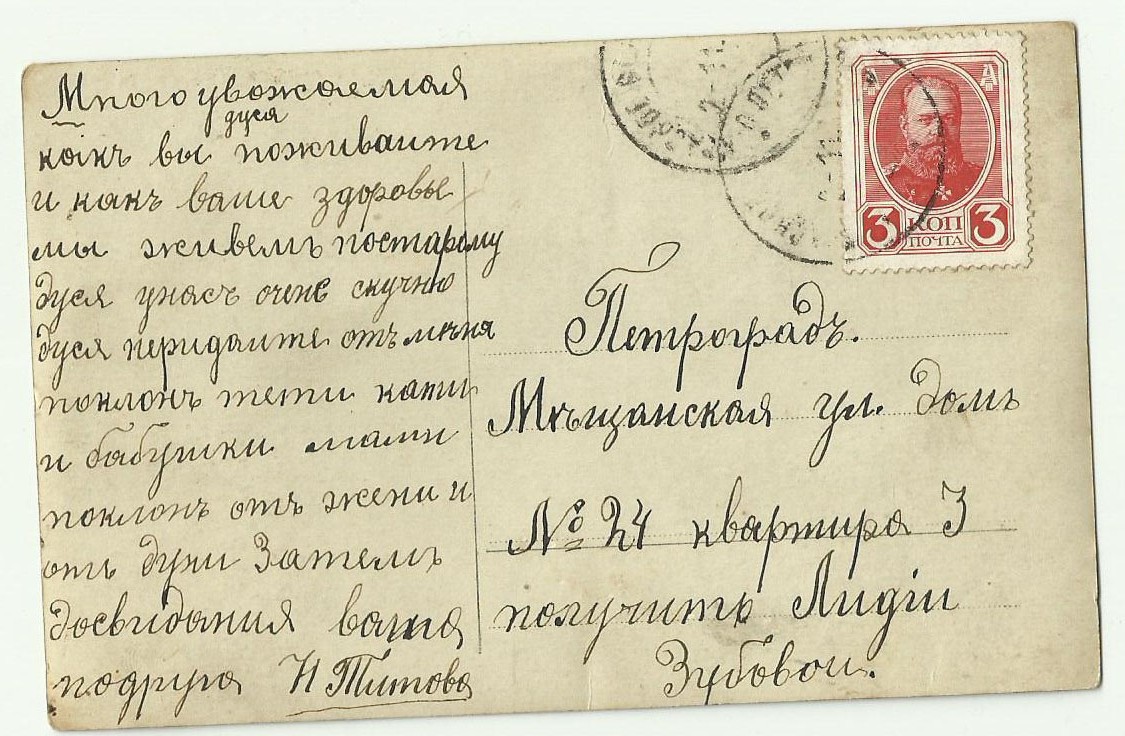 Много уважаемая
дуся
какъ вы поживаите
и какъ ваше здоровье
мы живемъ постарому
дуся унасъ очень скучно
дуся перидаите отъ мѣня
поклонъ тети кати
и бабушки мами
поклонъ отъ жени и
отъ дуни Затемъ
досвiдания ваша
подруга Н Титова
3 КОП 3
ПОЧТА
Петроградъ.
Мѣщанская ул. Домъ
№ 24 квартира 3
получить Лидiи
Зубовои.